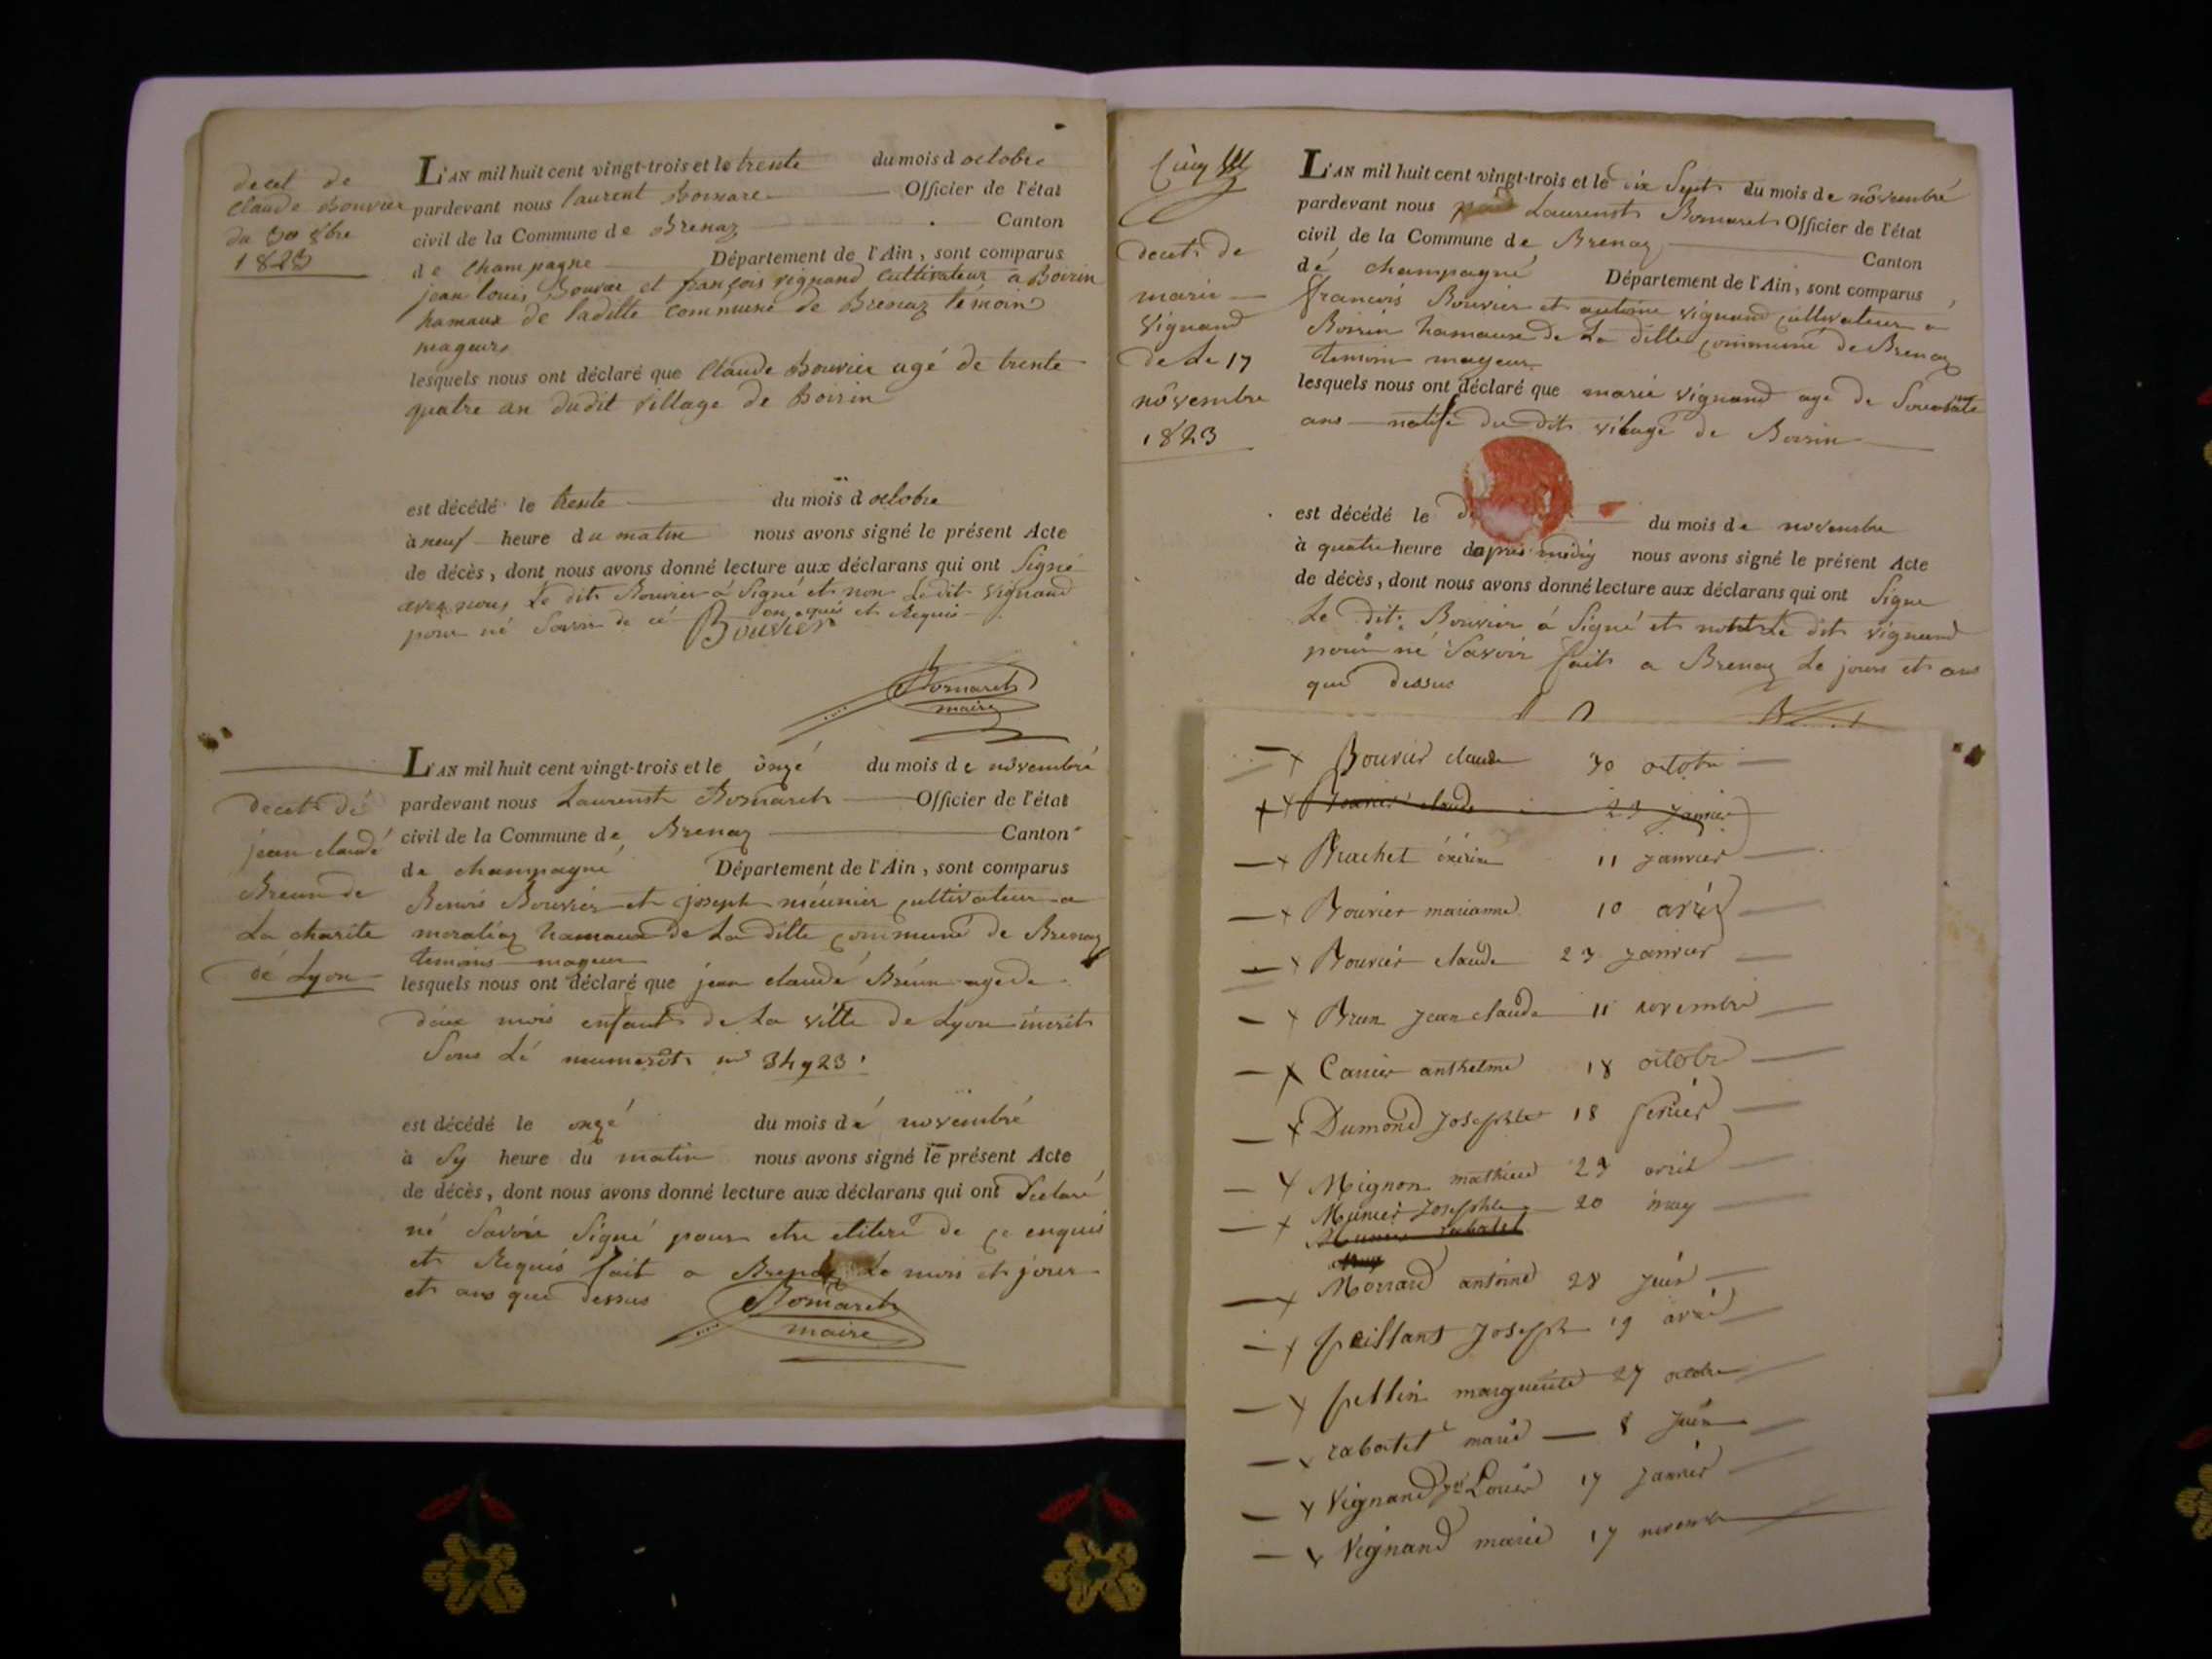 deces de
Claude Bouvier
du 30 8bre
1823
L'AN mil huit cent vingt-trois et le trente du mois d octobre
pardevant nous laurent Bornare Officier de l'état
civil de la Commune de Brenaz Canton
de Champagne Département de l'Ain, sont comparus
jean louis Bouvier et françois vignand Cultivateur a Boirin
hamaux de laditte commune de Brenaz témoin
mageurs
lesquels nous ont déclaré que Claude Bouvier agé de trente
quatre an dudit village de Boirin
est décédé le trente du mois d octobre
à neuf heure du matin nous avons signé le présent Acte
de décès, dont nous avons donné lecture aux déclarans qui ont Signé
avec nous Le dit Bouvier á Signé et non Le dit vignand
pour né Savoir de cé enquis et Requis
Bouvier
Bornaret
maire
decet dé
jean claudé
Breun de
La charite
dé Lyon
L'AN mil huit cent vingt-trois et le onzé du mois de novembré
pardevant nous Laurenst Bornaret Officier de l'état
civil de la Commune de Brenaz Canton
de champagné Département de l'Ain, sont comparus
Benois Bouvier et joseph meunier cultivateur a
moraliaz hamaux de La ditte communé de Brenaz
temoins mageur
lesquels nous ont déclaré que jean claudé Breun age de
deux mois enfant de La ville de Lyon inscrit
Sous Lé numerot n° 34923
est décédé le onzé du mois dé novembré
à Sy heure du matin nous avons signé le présent Acte
de décès, dont nous avons donné lecture aux déclarans qui ont Declaré
né Savoir Signé pour etre de ce enquis
et Requis fait a Brenaz Le mois et jour
et ans que dessus
Bornaret
maire
decet de
marie
vignand
de Le 17
novembre
1823
L'AN mil huit cent vingt-trois et le dix Sept du mois de novembré
pardevant nous Laurenst Bornaret Officier de l'état
civil de la Commune de Brenaz Canton
dé champagné Département de l'Ain, sont comparus
francois Bouvier et antoine vignand cultivateur a
Boirin hamaux de La ditte communé de Brenaz
temoin mageur
lesquels nous ont déclaré que marie vignand age de
ans natife du dit vilagé de Boirin
est décédé le du mois de novembre
à quatre heure daprés médy nous avons signé le présent Acte
de décès, dont nous avons donné lecture aux déclarans qui ont Signe
Le dit Bouvier á Signé et Le dit vignand
pour né Savoir fait a Brenaz Le jours et ans
que dessus
Bouvier claude 30 octobre
claude 23 janvier
Brachet 11 janvier
Bouvier marianne 10 avril
Bouvier claude 23 janvier
Brun jean claude 11 novembre
anthelme 18 octobre
Dumond Josephte 18 fevrier
Mignon mathieu 29 avril
Munier Josephte 20 may
Munier rabatel
antoine 28 juin
Joseph 19 avril
pellin marguerite 27 octobre
rabatel marie 8 juin
Vignand Louise 17 janvier
Vignand marie 17 novembre